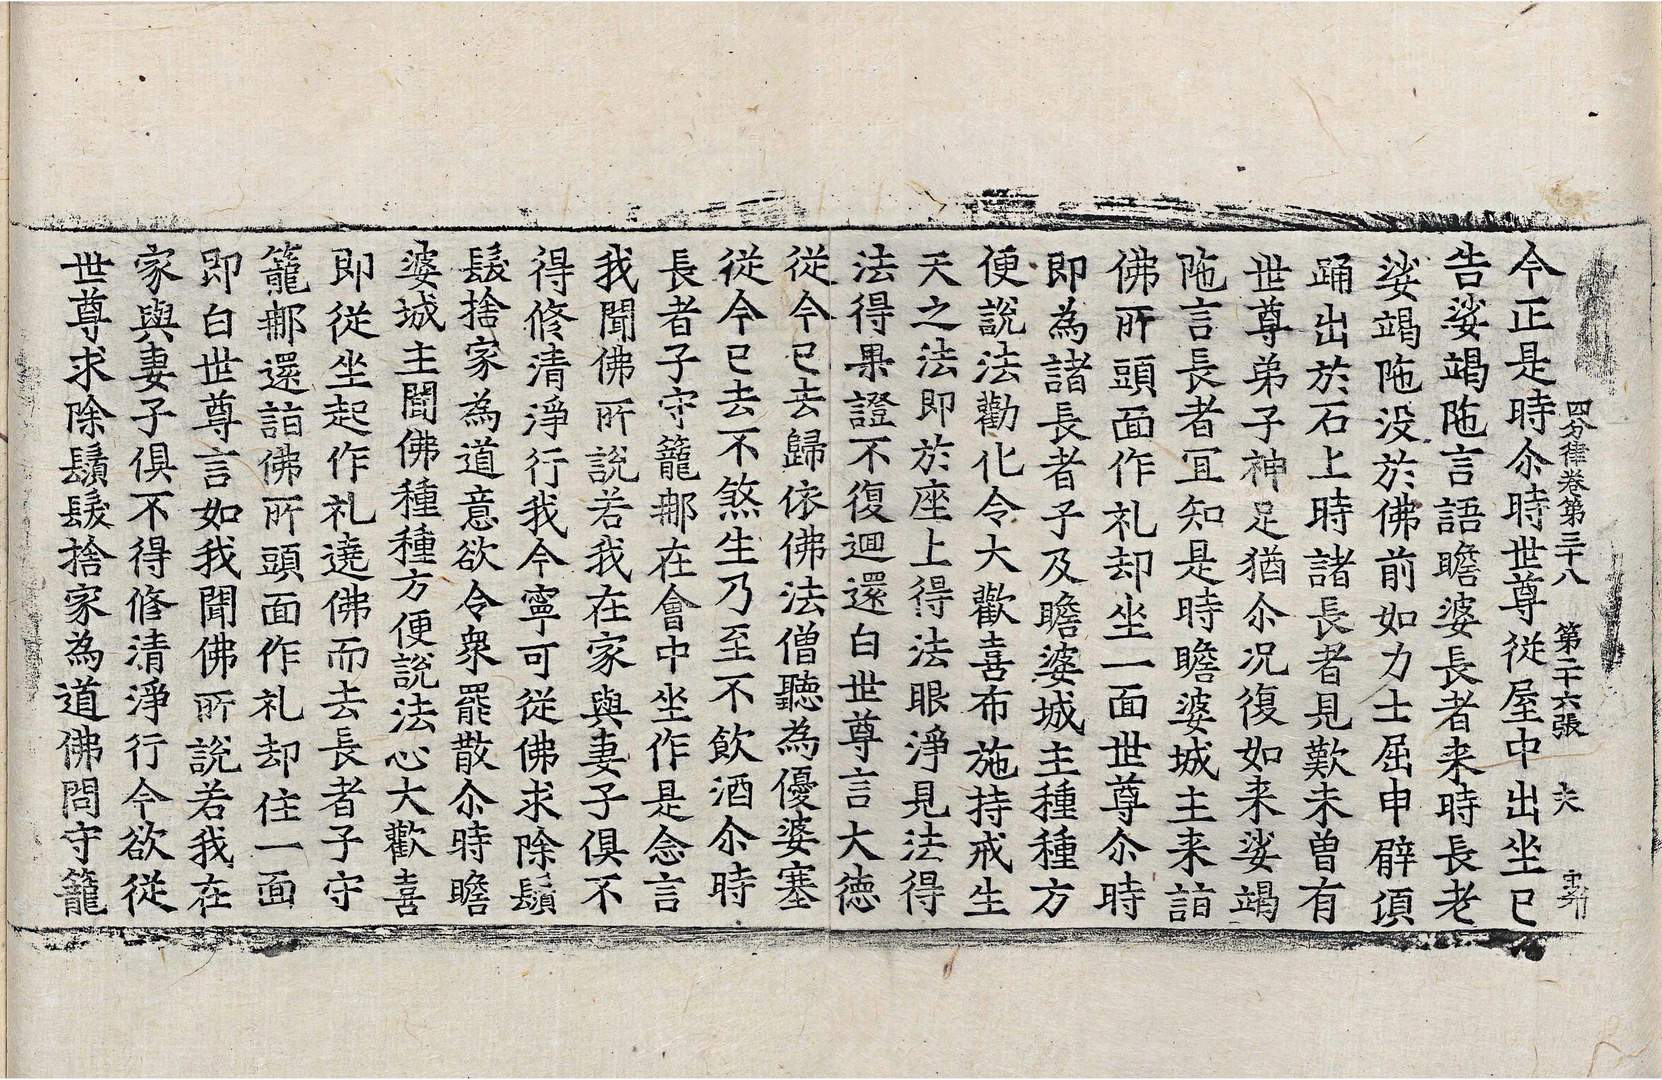 四分律卷第三十八 第二十六張
今正是時尒時世尊從屋中出坐已
告娑竭陁言語瞻婆長者来時長老
娑竭陁没於佛前如力士屈申臂頃
踊出於石上時諸長者見歎未曽有
世尊弟子神足猶尒况復如来娑竭
陁言長者冝知是時瞻婆城主来詣
佛所頭面作礼却坐一面世尊尒時
即為諸長者子及瞻婆城主種種方
便說法勸化令大歡喜布施持戒生
天之法即於座上得法眼淨見法得
法得果證不復迴還白世尊言大德
從今已去歸依佛法僧聽為優婆塞
從今已去不煞生乃至不飲酒尒時
長者子守籠那在會中坐作是念言
我聞佛所說若我在家與妻子俱不
得修清淨行我今寧可從佛求除鬚
髮捨家為道意欲令衆罷散尒時瞻
婆城主聞佛種種方便說法心大歡喜
即從坐起作礼遶佛而去長者子守
籠那還詣佛所頭面作礼却住一面
即白世尊言如我聞佛所說若我在
家與妻子俱不得修清淨行今欲從
世尊求除鬚髮捨家為道佛問守籠